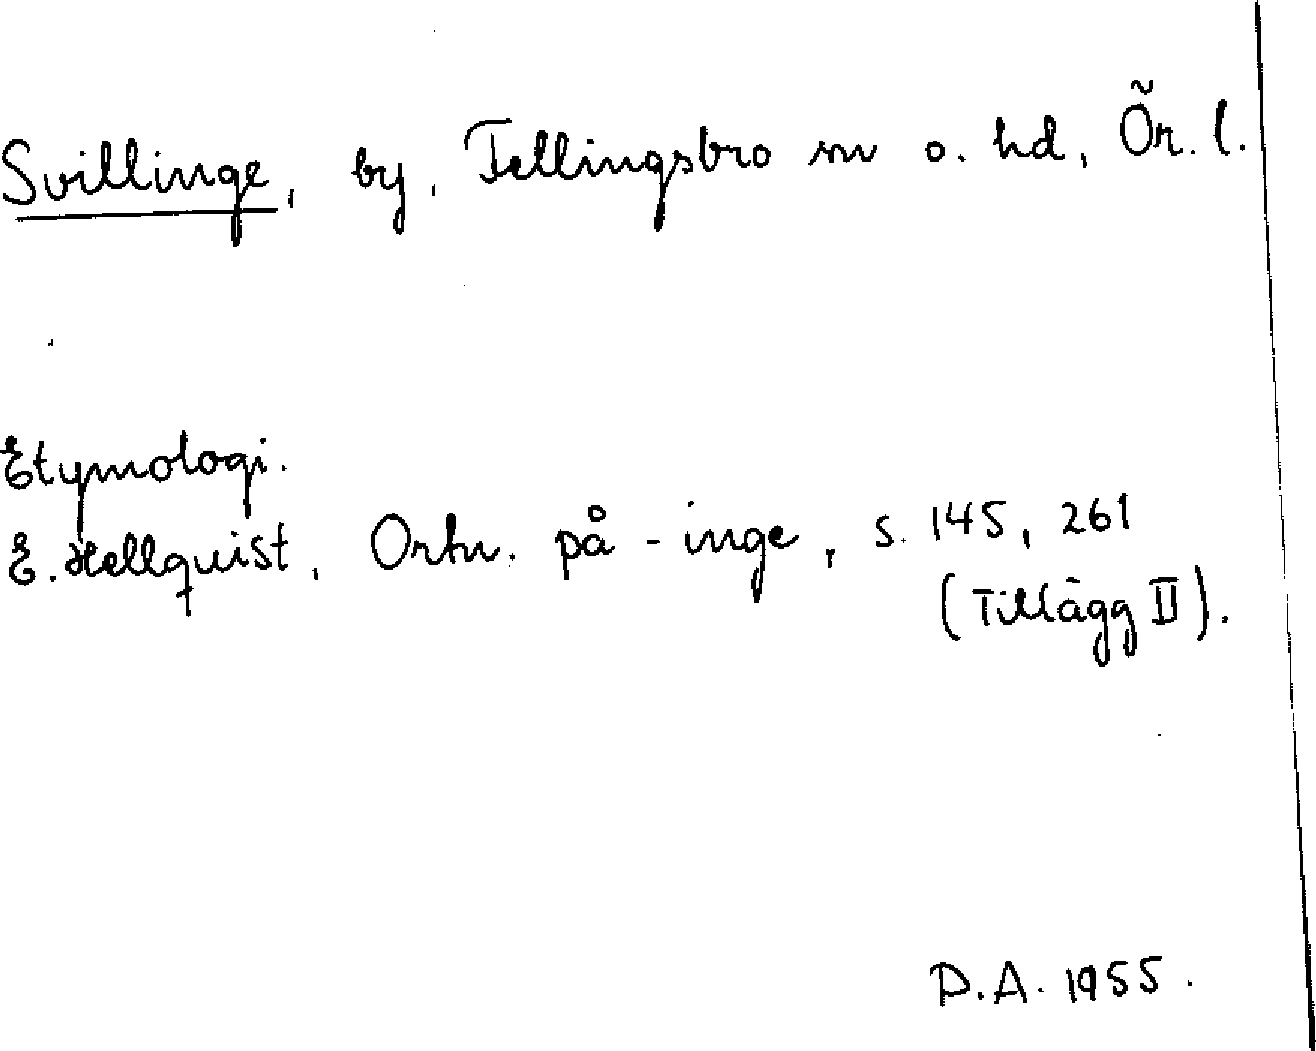 Svillinge, by, Fellingsbro sn o. hd, Ör. l.
Etymologi.
E. Hellquist, Ortn. på -inge, s. 145, 261
(Tillägg II).
P.A. 1955.